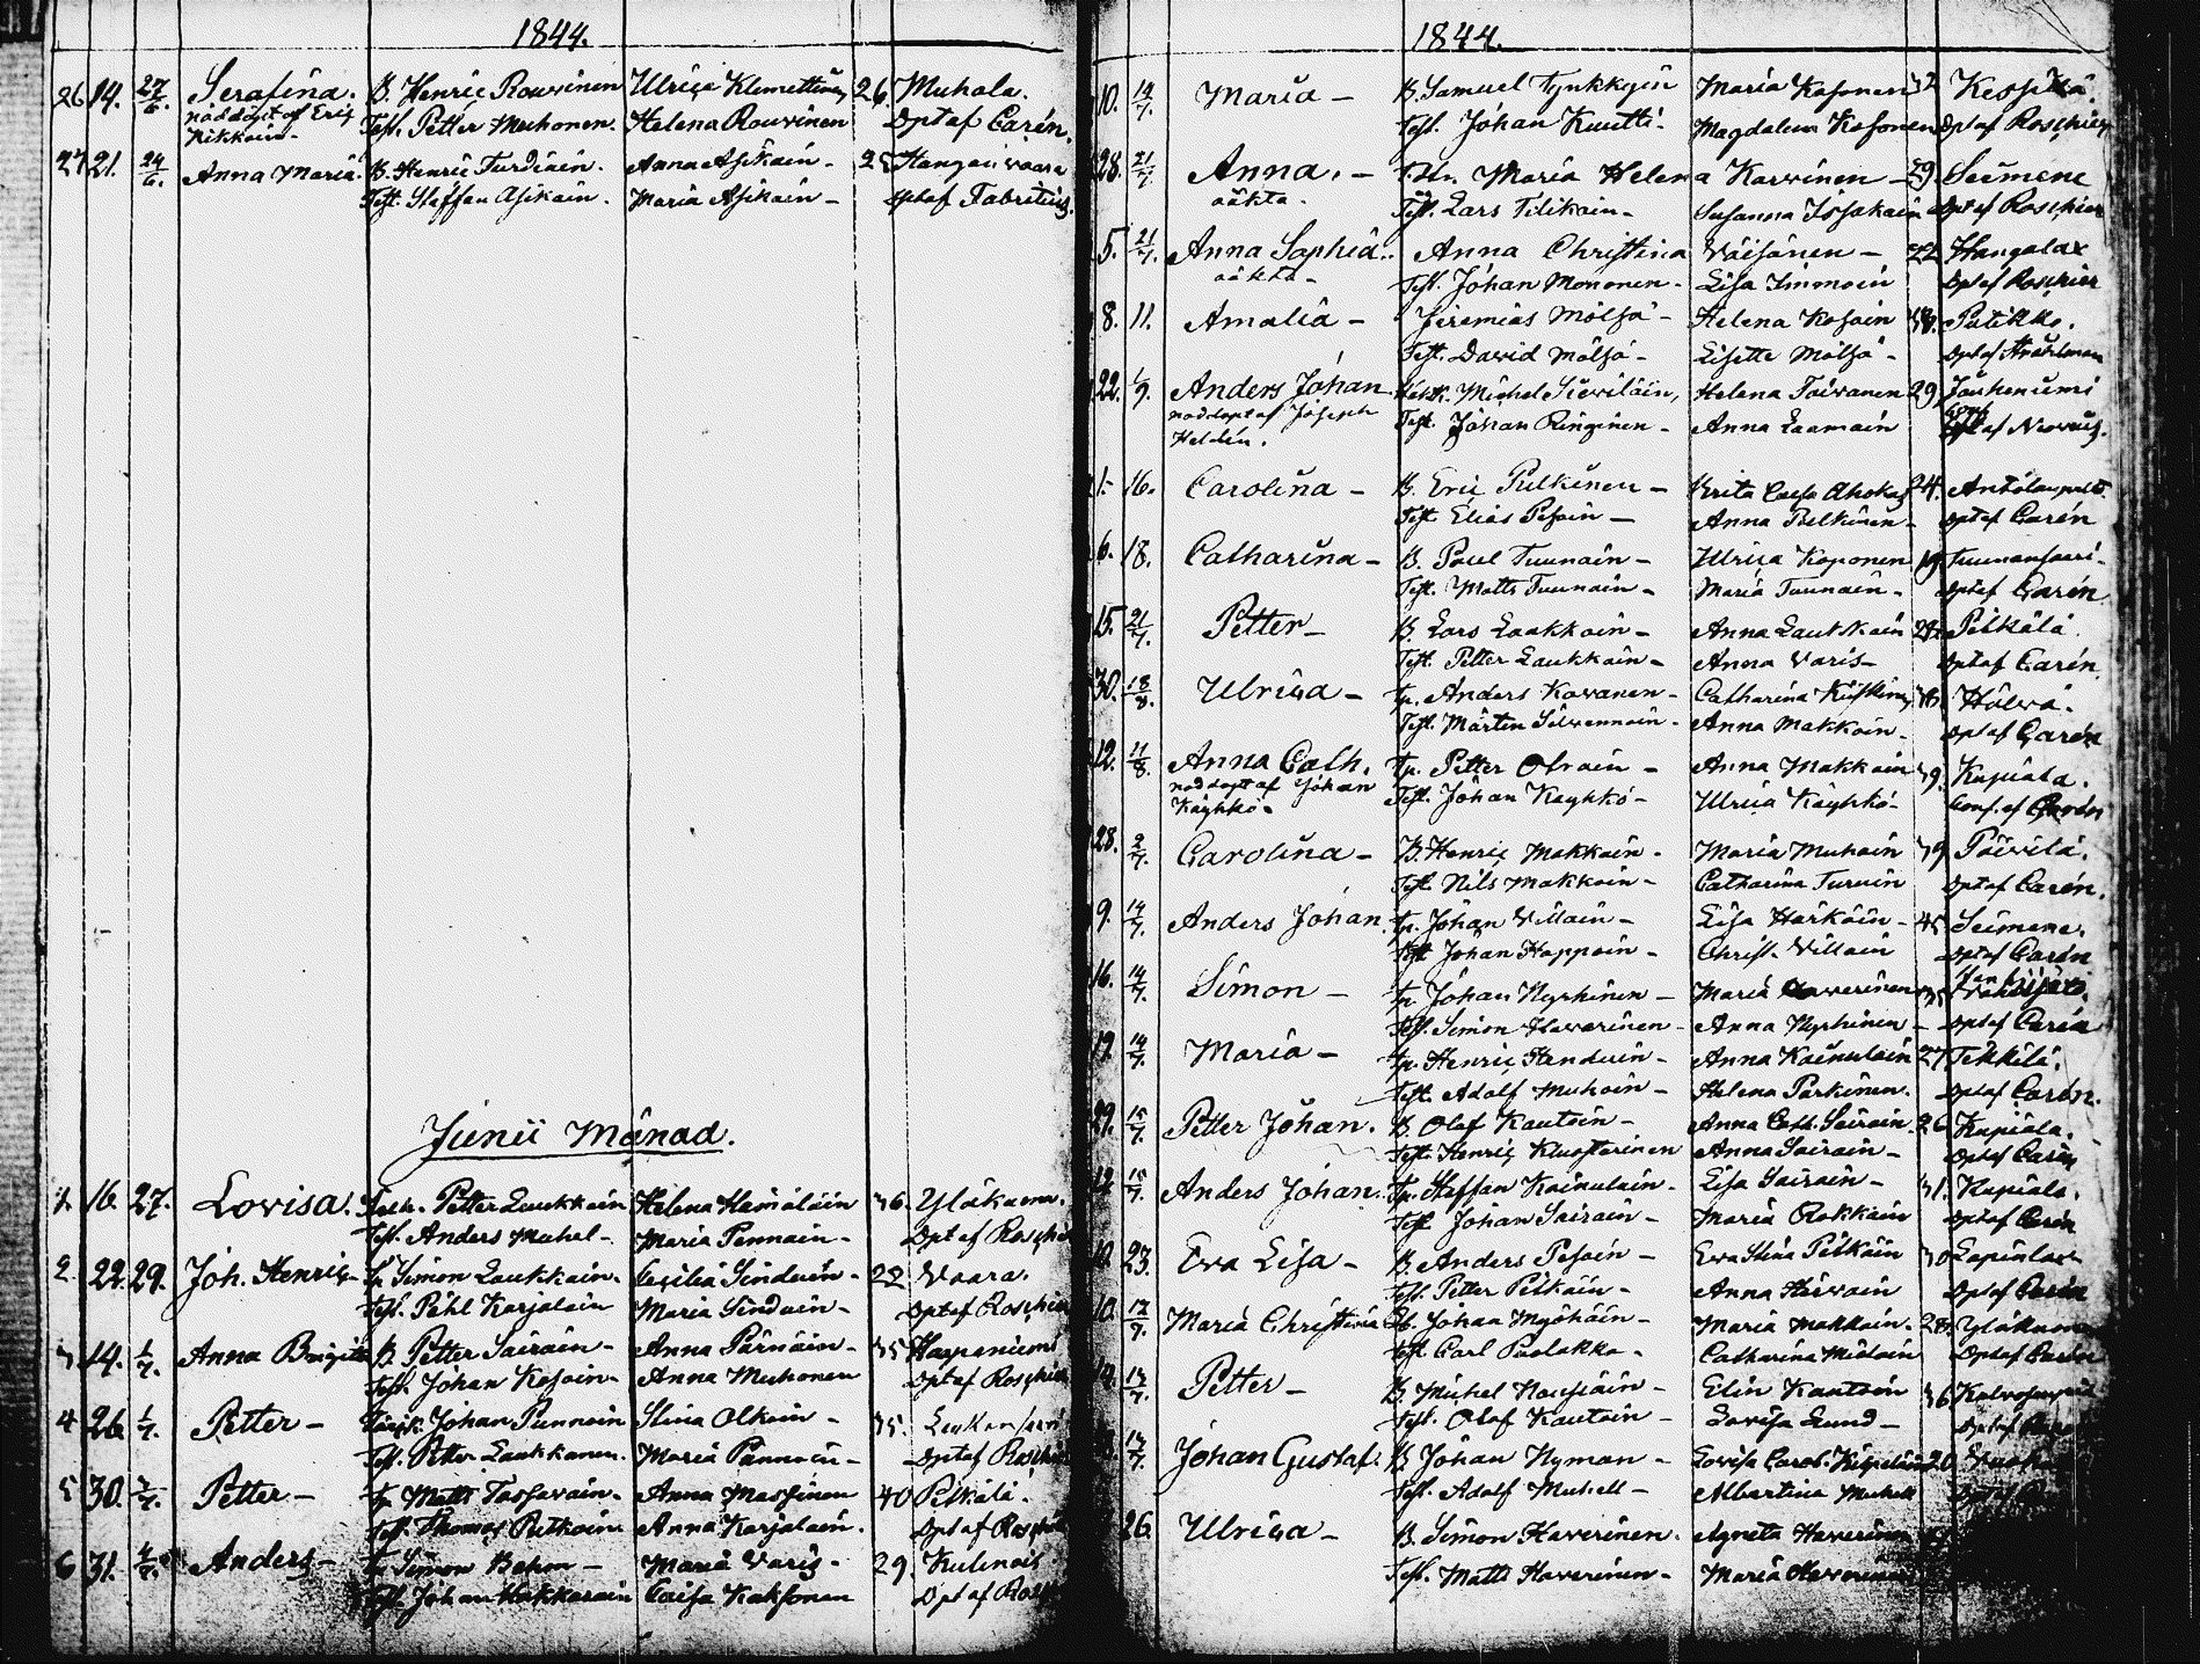 1844.
26 14. 27/6. Serafina. B. Henric Rouvinen Ulrica Klemettinen 26 Muhola.
nöddöpt af Eric Test. Petter Muhonen. Helena Rouvinen Dpt af Carén.
Kikkain.
27 21. 24/6. Anna Maria. B. Henric Turdiain. Anna Asikain - 25 Hangasvaara
Test. Staffan Asikain. Maria Asikain - Dpt af Fabritius.
Junii Månad.
1. 16. 27. Lovisa. Petter Laukkain Helena Hämäläin 36. Yläkuona.
Test. Anders Muhel - Maria Pennain - Dpt af Roschier
2. 22. 29. Joh. Henric - Tp. Simon Laukkain. Cecilia Sinduin - 22 Vaara.
Test. Pehl Karjalain Maria Sinduin - Dpt af Roschier
3. 14. 1/7. Anna Brigita B. Petter Sairain - Anna Pärnäin - 35 Haapaniemi
Test. Johan Kosoin - Anna Muhonen Dpt af Roschier
4 26 1/7. Petter - Johan Punnoin Stina Olkoin - 35.
Test. Petter Laukkanen. Maria Dpt af Roschier
5 30. Petter - Tp. Matts Tossavain. Anna Massinen 40 Pitkälä.
Test. Thomas Putkoin Anna Karjalain. Dpt af Roschier
6 31. Anders - Simon Behm - Maria Varis - 29. Kulinais
Test. Johan Makkarain Caisa Kaksonen Dpt af
1844.
10. 14/7. Maria - B. Samuel Tynkkyin Maria Kosonen 32
Test. Johan Kuutti. Magdalena Kosonen Dpt af Roschier
28. 21/7. Anna. - Maria Helena Karvinen - 29. Siimene
oäkta. Test. Lars Tilikain - Susanna Issakain Dpt af Roschier
5. 21/7. Anna Sophia. Anna Christina Väisänen - 22 Hangalax
oäkta - Test. Johan Mononen - Lisa Immoin Dpt af Roschier
8. 11. Amalia - Jeremias Mölsä - Helena Kosoin Putikko.
Test. David Mölsä - Lisette Mölsä - Dpt af
22. 1/9. Anders Johan Michel Siewiläin, Helena Toivanen 29 Jouheniemi
nöddöpt af Joseph Test. Johan Ringinen - Anna Laamain
Heldén.
1. 16. Carolina - B. Eric Pulkinen - Brita Caisa Ahokas 24.
Test. Elias Pesoin - Anna Pulkinen - Dpt af Carén
6. 18. Catharina - B. Paul Tuunain - Ulrica Koponen 19 Tuunansaari -
Test. Matts Tuunain - Maria Tuunain - Dpt af Carén
15. 21/7. Petter - B. Lars Laukkain - Anna Laukkain 28 Pitkälä.
Test. Petter Laukkain - Anna Varis - Dpt af Carén
30. 18/8. Ulrica - Tp. Anders Kovanen - Catharina Hälvä.
Test. Mårten Silvennoin - Anna Makkoin - Dpt af Carén
12. 11/8. Anna Cath. Tp. Petter Olvain - Anna Makkoin 39. Kupiala.
nöddöpt af Johan Test. Johan Käyhkö - Ulrica Käyhkö - Conf. af Carén
Käyhkö -
28. 2/7. Carolina - B. Henric Makkoin - Maria Muhoin 39 Päivilä.
Test. Nils Makkoin - Catharina Turuin Dpt af Carén.
9. 14/7. Anders Johan. Tp. Johan Villain - Lisa Härkäin - 45 Siimene.
Test. Johan Happoin - Christ. Villain Dpt af Carén
16. 14/7. Simon - Tp. Johan Nyrhinen - Maria Haverinen 35
Test. Simon Haverinen - Anna Nyrhinen - Dpt af Carén
19. 14/7. Maria - Tp. Henric Handuin - Anna Koinulain 27
Test. Adolf Muhoin - Helena Parkinen. Dpt af Carén.
29. 15/7. Petter Johan. B. Olof Kautoin - Anna Cath. Sairain. 26 Kupiala.
Test. Henric Klusterinen Anna Sairain - Dpt af Carén
12. 15/7. Anders Johan. Tp. Staffan Koinulain - Lisa Sairain - 31. Kupiala.
Test. Johan Sairain - Maria Rokkain Dpt af Carén
10. 23. Eva Lisa - B. Anders Pesoin - Eva Stina Pitkäin 30 Lapinlax -
Test. Petter Pitkäin - Anna Hirvoin Dpt af Carén
10. 12/7. Maria Christina Johan Myöhäin - Maria Makkoin. 28. Yläkuona
Test. Carl Puolakka - Catharina Miöläin Dpt af Carén
14. 17/7. Petter - B. Michel Nousiain - Elin Kautoin 36
Test. Olof Kautoin - Lovisa Lund - Dpt af
17/7. Johan Gustaf. B. Johan Nyman - Lovisa Carol. 20
Test. Adolf Muhell - Albertina Muhell
26. Ulrica - B. Simon Haverinen. Agneta Haverinen
Test. Matts Haverinen - Maria Haverinen